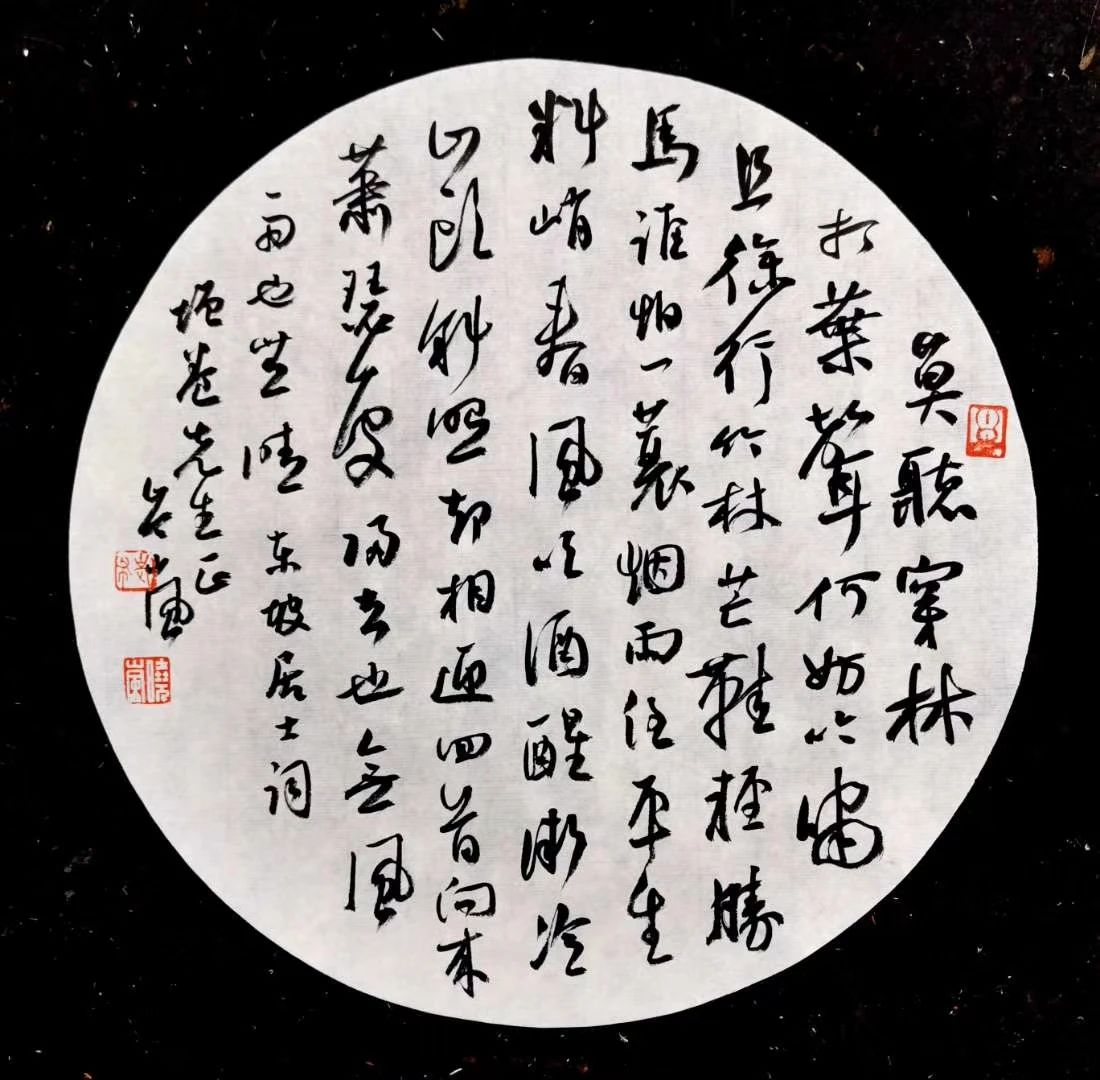 莫聽穿林
打葉聲何妨吟嘯
且徐行竹杖芒鞋輕勝
馬誰怕一蓑烟雨任平生
料峭春風吹酒醒微冷
山頭斜照却相迎回首向來
蕭瑟處歸去也無風
雨也無晴 東坡居士詞
先生正
曉嵐